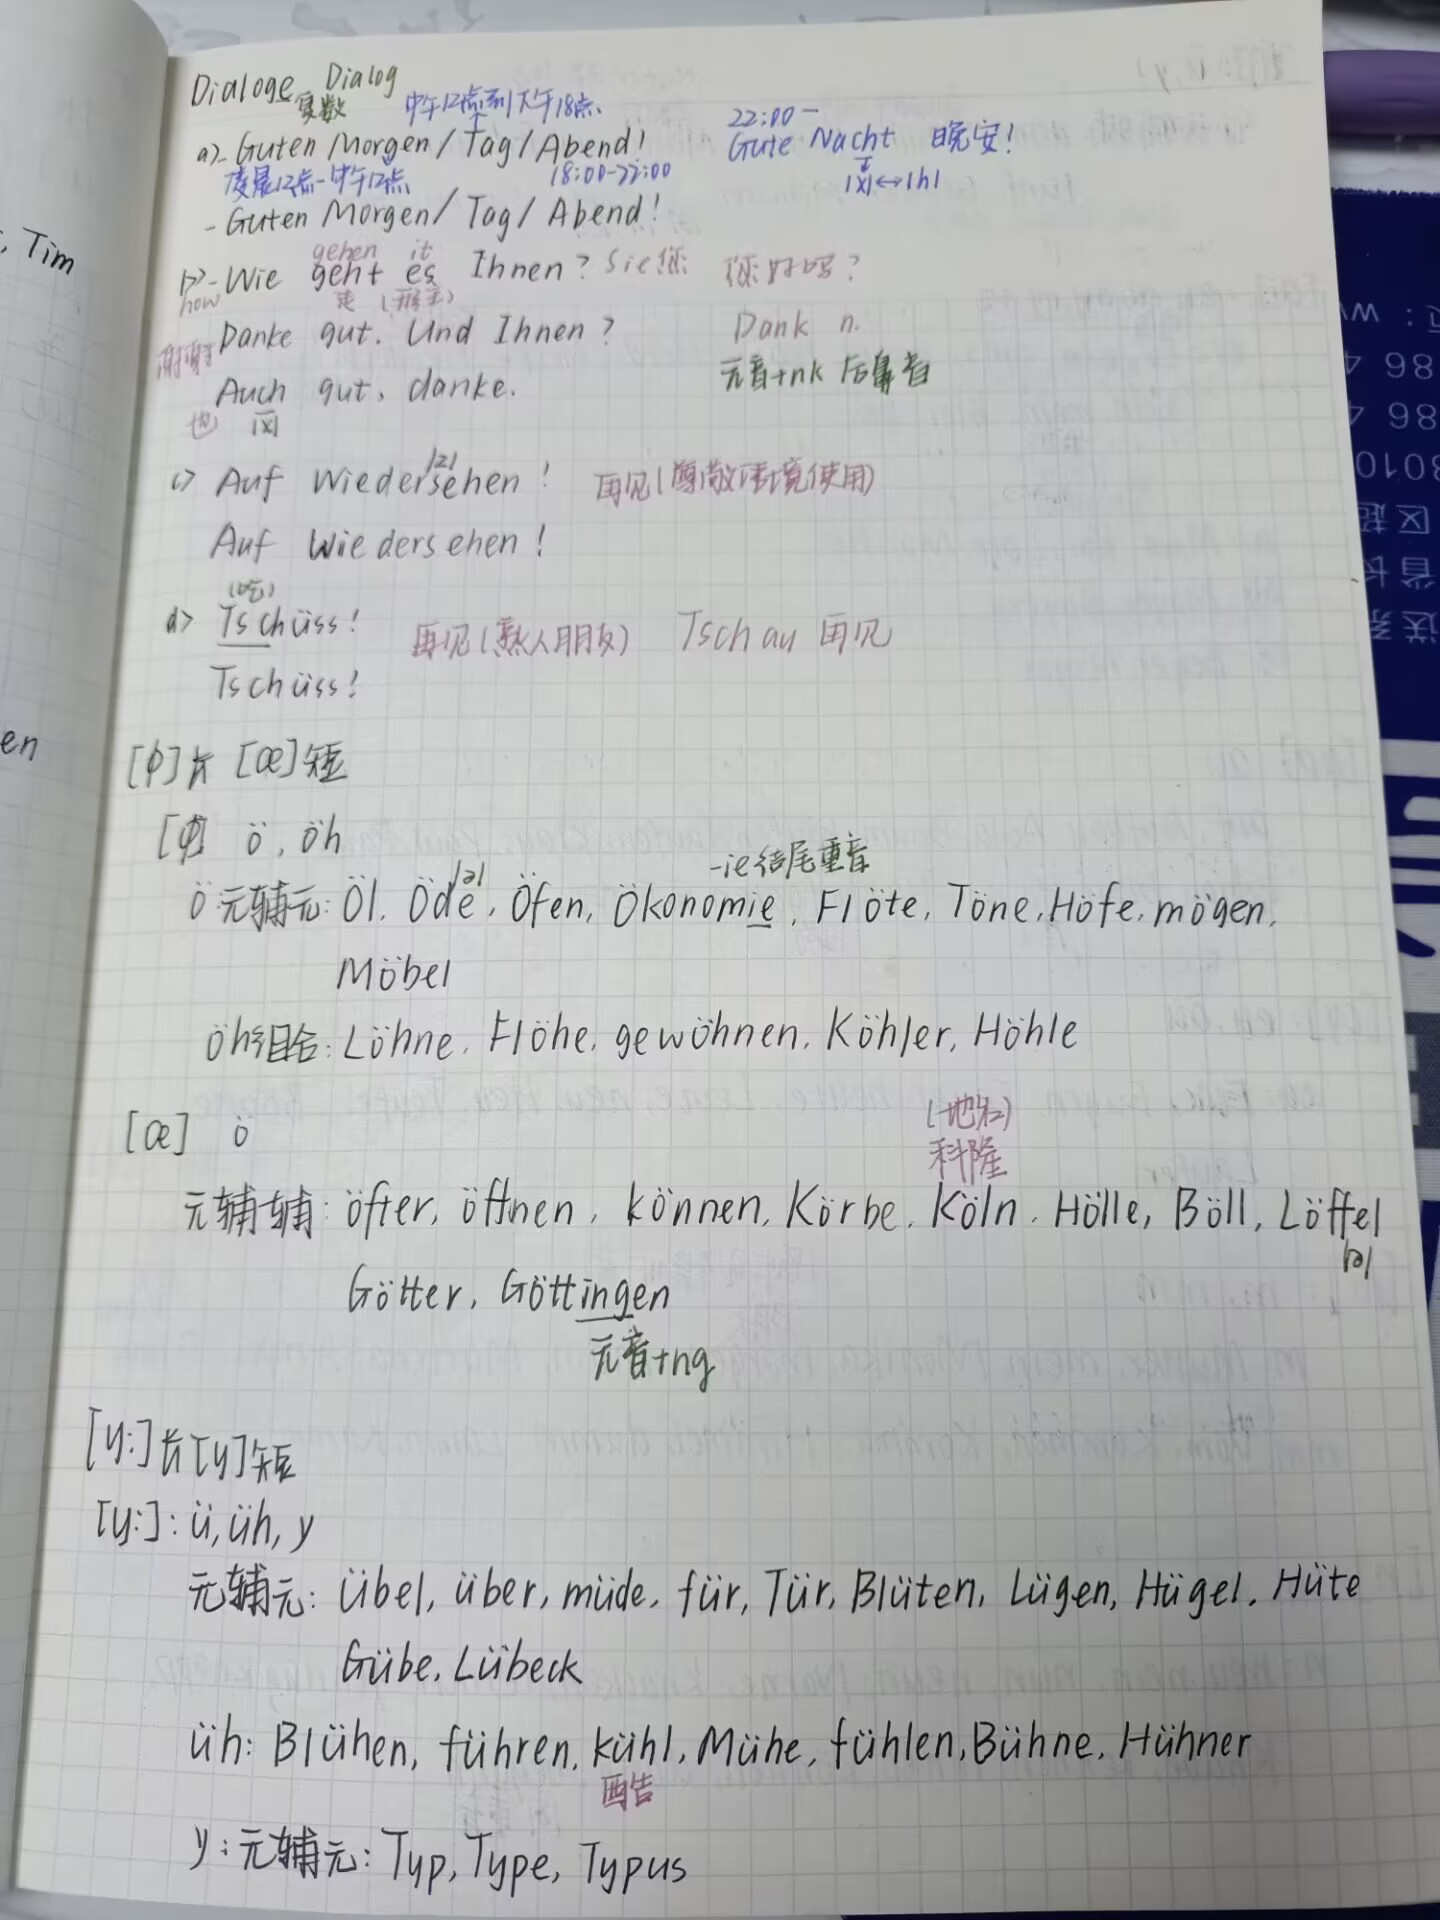 Dialoge Dialog
复数 中午12点到下午18点 22:00-
a) - Guten Morgen / Tag / Abend! Gute Nacht 晚安!
凌晨12点-中午12点 18:00-22:00 |x|↔|h|
- Guten Morgen / Tag / Abend!
gehen it
b) - Wie geht es Ihnen? Sie 您 你好吗?
how 走 (形主)
谢谢 Danke gut. Und Ihnen? Dank n.
Auch gut, danke. 元音+nk 后鼻音
也 |x|
|z|
c) Auf Wiedersehen! 再见(尊敬语境使用)
Auf Wiedersehen!
d) Tschüss! 再见(熟人朋友) Tschau 再见
Tschüss!
[ø]长 [œ]短
[ø] ö, öh
|ə| -ie结尾重音
ö元辅元: Öl, Öde, Öfen, Ökonomie, Flöte, Töne, Höfe, mögen,
Möbel
öh组合: Löhne, Flöhe, gewöhnen, Köhler, Höhle
[œ] ö
(地名)
科隆
元辅辅: öfter, öffnen, können, Körbe, Köln, Hölle, Böll, Löffel
|ə|
Götter, Göttingen
元音+ng
[y:]长[y]短
[y:]: ü, üh, y
元辅元: Übel, über, müde, für, Tür, Blüten, Lügen, Hügel, Hüte
Gübe, Lübeck
üh: Blühen, führen, kühl, Mühe, fühlen, Bühne, Hühner
酷
y: 元辅元: Typ, Type, Typus
, Tim
en